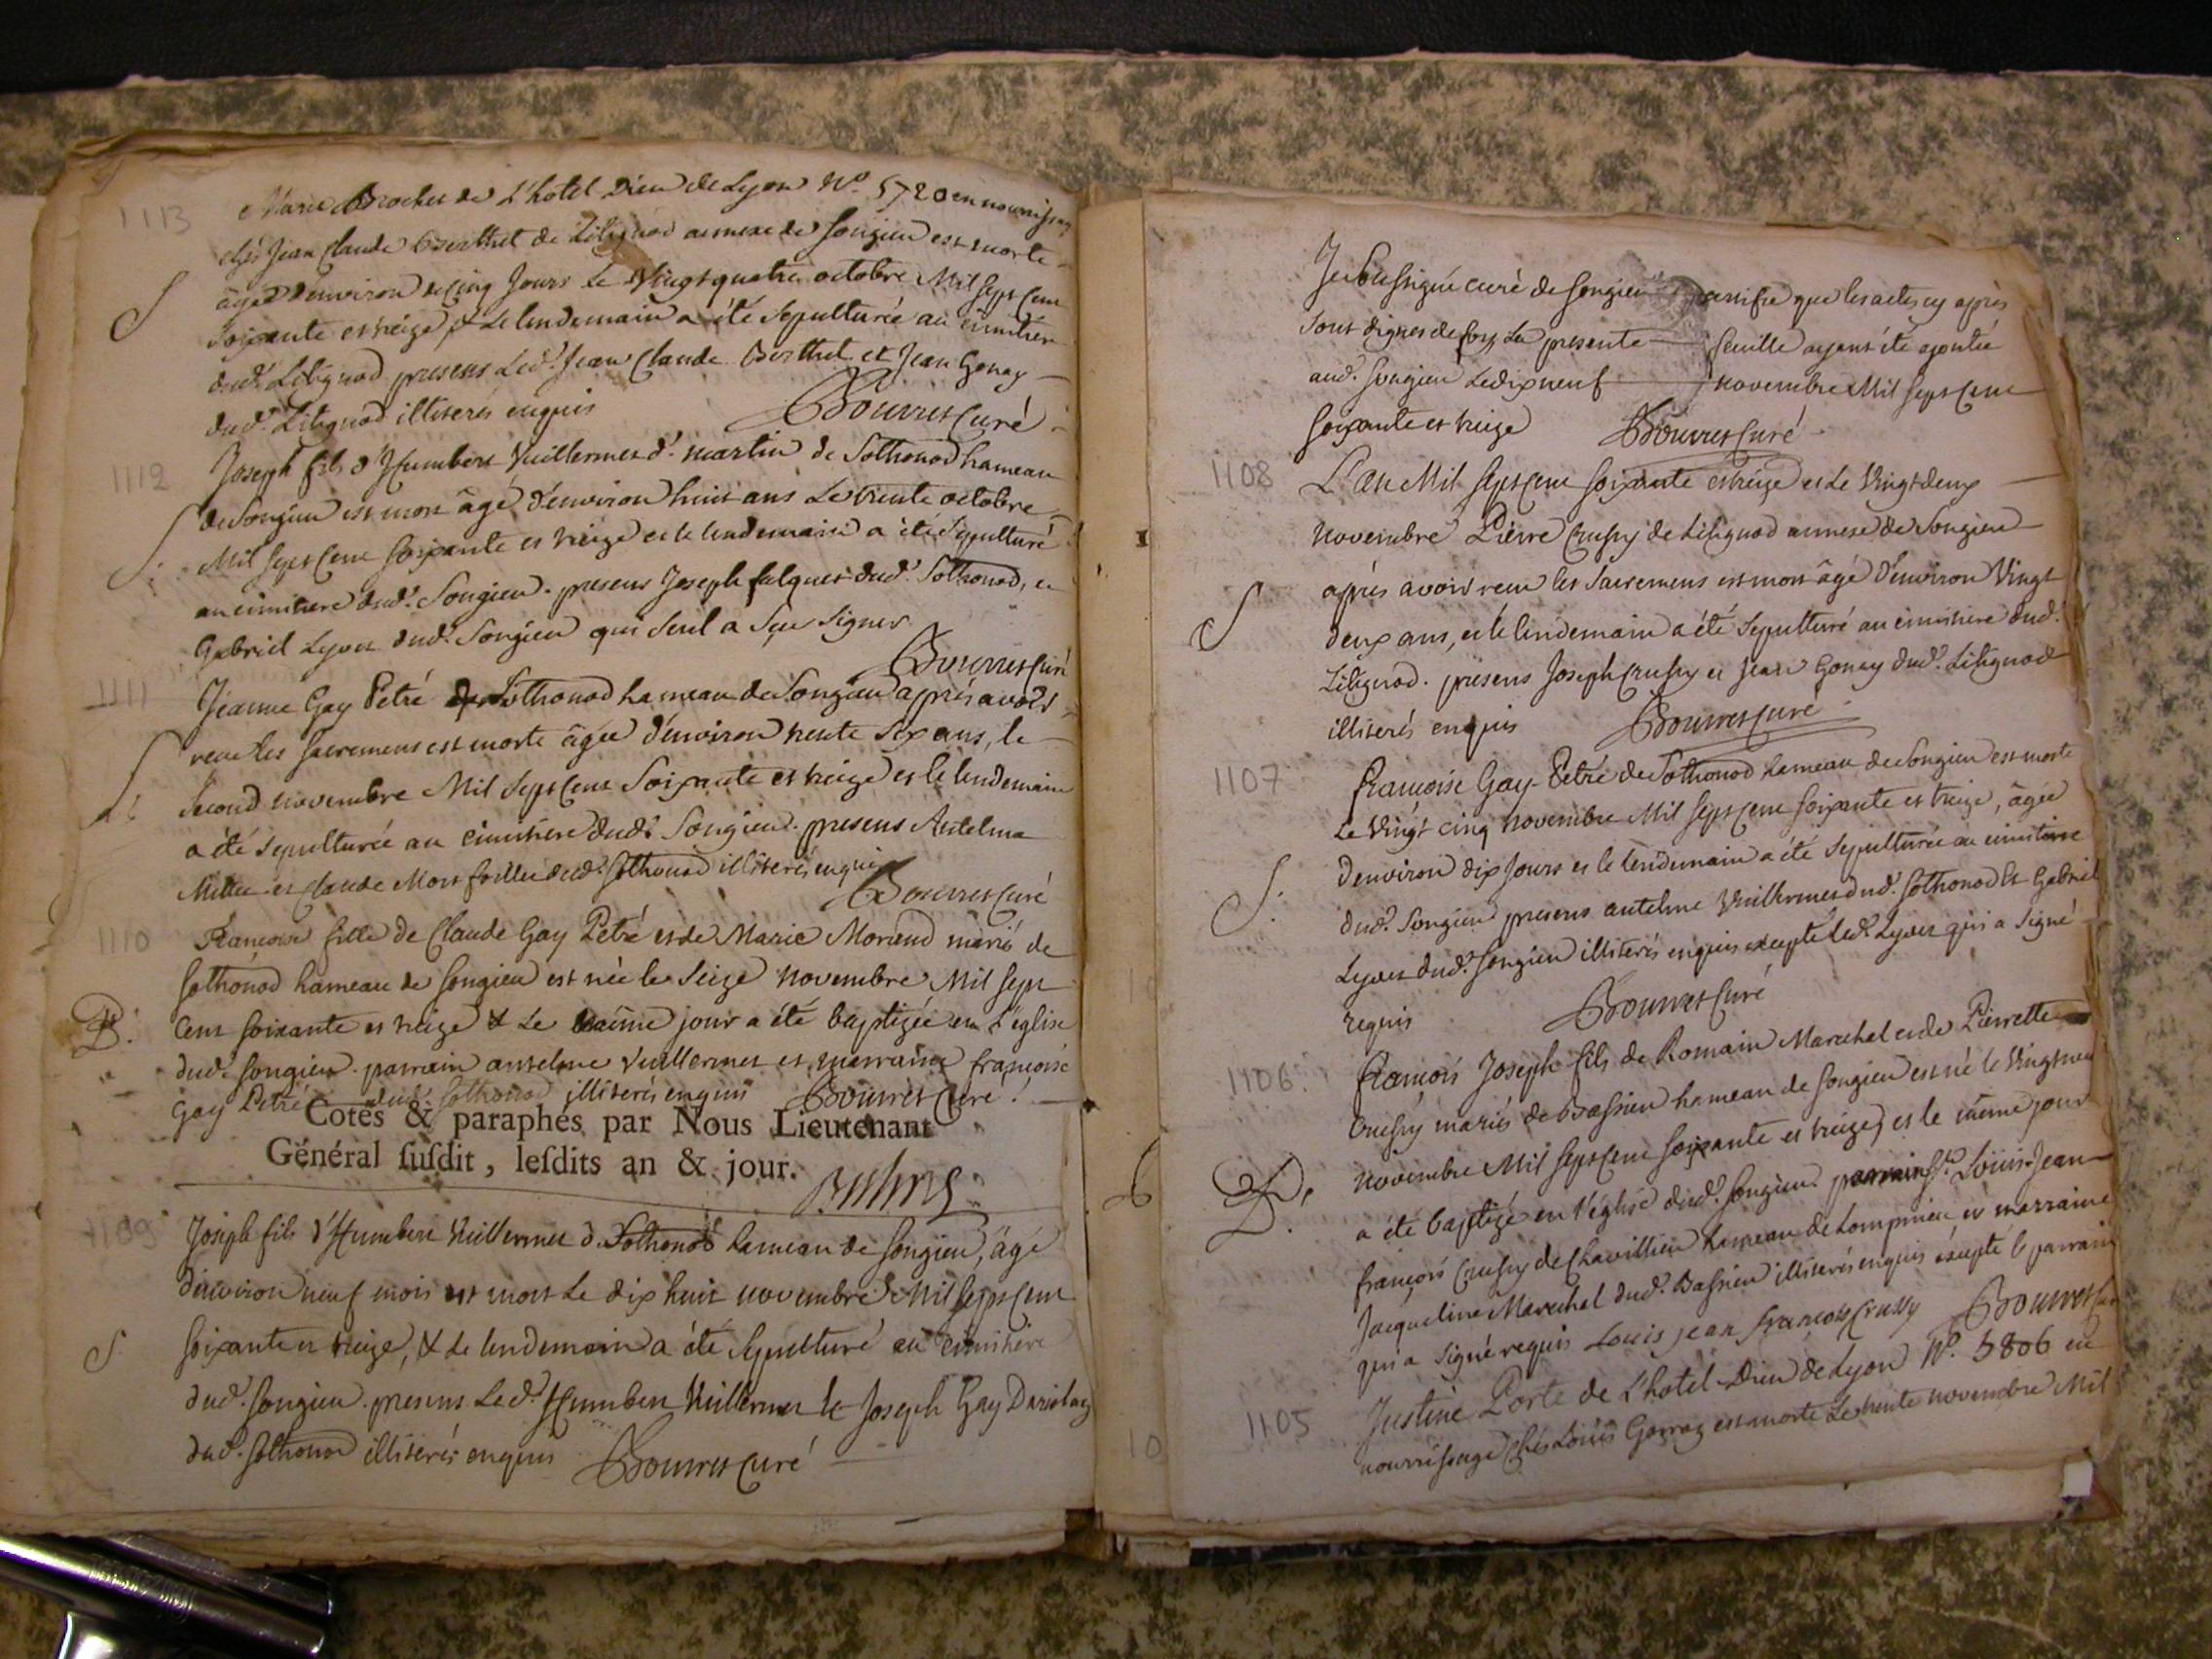 1113
Marie Brochu de L'hotel Dieu de Lyon N.o 5720 en nourrissage
chés Jean Claude Berthet de Lilignod annexe de Songieu est morte
âgée d'environ cinq Jours le Vingt quatre octobre Mil sept cent
S
soixante et treize, & le lendemain a été sepulturée au cimitière
dud.t Lilignod presens Led.t Jean Claude Berthet et Jean Gonay
dud.t Lilignod illiterés enquis Bouvret Curé
1112
Joseph fils d'Humbert Vuillermet d. martin de Sothonod hameau
de Songieu est mort âgé d'environ huit ans Le trente octobre
S.
Mil sept cent soixante et treize et le lendemain a été Sepulturé
au cimitiere dud.t Songieu. presens Joseph falquet dud.t Sothonod, et
Gabriel Lyvet dud.t Songieu qui seul a sçu signer
Bouvret Curé
1111
Jeanne Gay Petré de Sothonod hameau de Songieu après avoir
receu les sacremens est morte âgée d'environ trente six ans, le
S.
second novembre Mil sept cent soixante et treize et le lendemain
a été sepulturée au cimitiere dud.t Songieu. presens Antelme
Millet et Claude Mort dud.t Sothonod illiterés enquis
Bouvret Curé
1110
Francoise fille de Claude Gay Petré et de Marie Morand mariés de
Sothonod hameau de Songieu est née le Seize novembre Mil sept
B.
Cent soixante et treize & Le même jour a été baptizée en l'église
dud.t Songieu. parrain antelme Vuillermet et marraine françoise
Gay Petré dud.t Sothonod illiterés enquis Bouvret Curé.
Cotés & paraphés par Nous Lieutenant
Général ſuſdit, leſdits an & jour.
1109
Joseph fils d'Humbert Vuillermet d. Sothonod hameau de Songieu, âgé
d'environ neuf mois est mort Le dix huit novembre Mil sept cent
S.
soixante et treize, & Le lendemain a été sepulturé au cimitière
dud.t Songieu. presens Led.t Humbert Vuillermet & Joseph Gay
dud.t Sothonod illiterés enquis Bouvret Curé
Je soussigné curé de Songieu certifie que les actes cy après
sont dignes de foy, La presente feuille ayant été ajoutée
aud.t Songieu Le dix neuf novembre Mil sept cent
soixante et treize Bouvret Curé
1108
L'an Mil sept cent soixante et treize et Le Vingt deux
novembre Pierre Crussy de Lilignod annexe de Songieu
après avoir receu les Sacremens est mort âgé d'environ Vingt
S
deux ans, et le lendemain a été sepulturé au cimitiere dud.t
Lilignod. presens Joseph Crussy et Jean Gonay dud.t Lilignod
illiterés enquis Bouvret Curé
1107
françoise Gay-Petré de Sothonod hameau de Songieu est morte
Le Vingt cinq novembre Mil sept cent soixante et treize, âgée
d'environ dix Jours et le lendemain a été sepulturée au cimitiere
S.
dud.t Songieu presens antelme Vuillermet dud.t Sothonod Et Gabriel
Lyvet dud.t Songieu illiterés enquis excepté led.t Lyvet qui a signé
requis Bouvret Curé
1106
François Joseph fils de Romain Marechal et de Pierrette
Crussy mariés de Bassieu hameau de Songieu est né le Vingt neuf
novembre Mil sept cent soixante et treize, et le même jour
B.
a été baptizé en l'église dud.t Songieu. parrain S.r Louis Jean
françois Crussy de Chavillieu hameau de Lompnieu et marraine
Jacqueline Marechal dud.t Bassieu illiterés enquis excepté le parrain
qui a signé requis Louis jean francois Crussy Bouvret
1105
Justine Porte de L'hotel-Dieu de Lyon N.o 5806 en
nourrissage chés Louis est morte Le trente novembre Mil